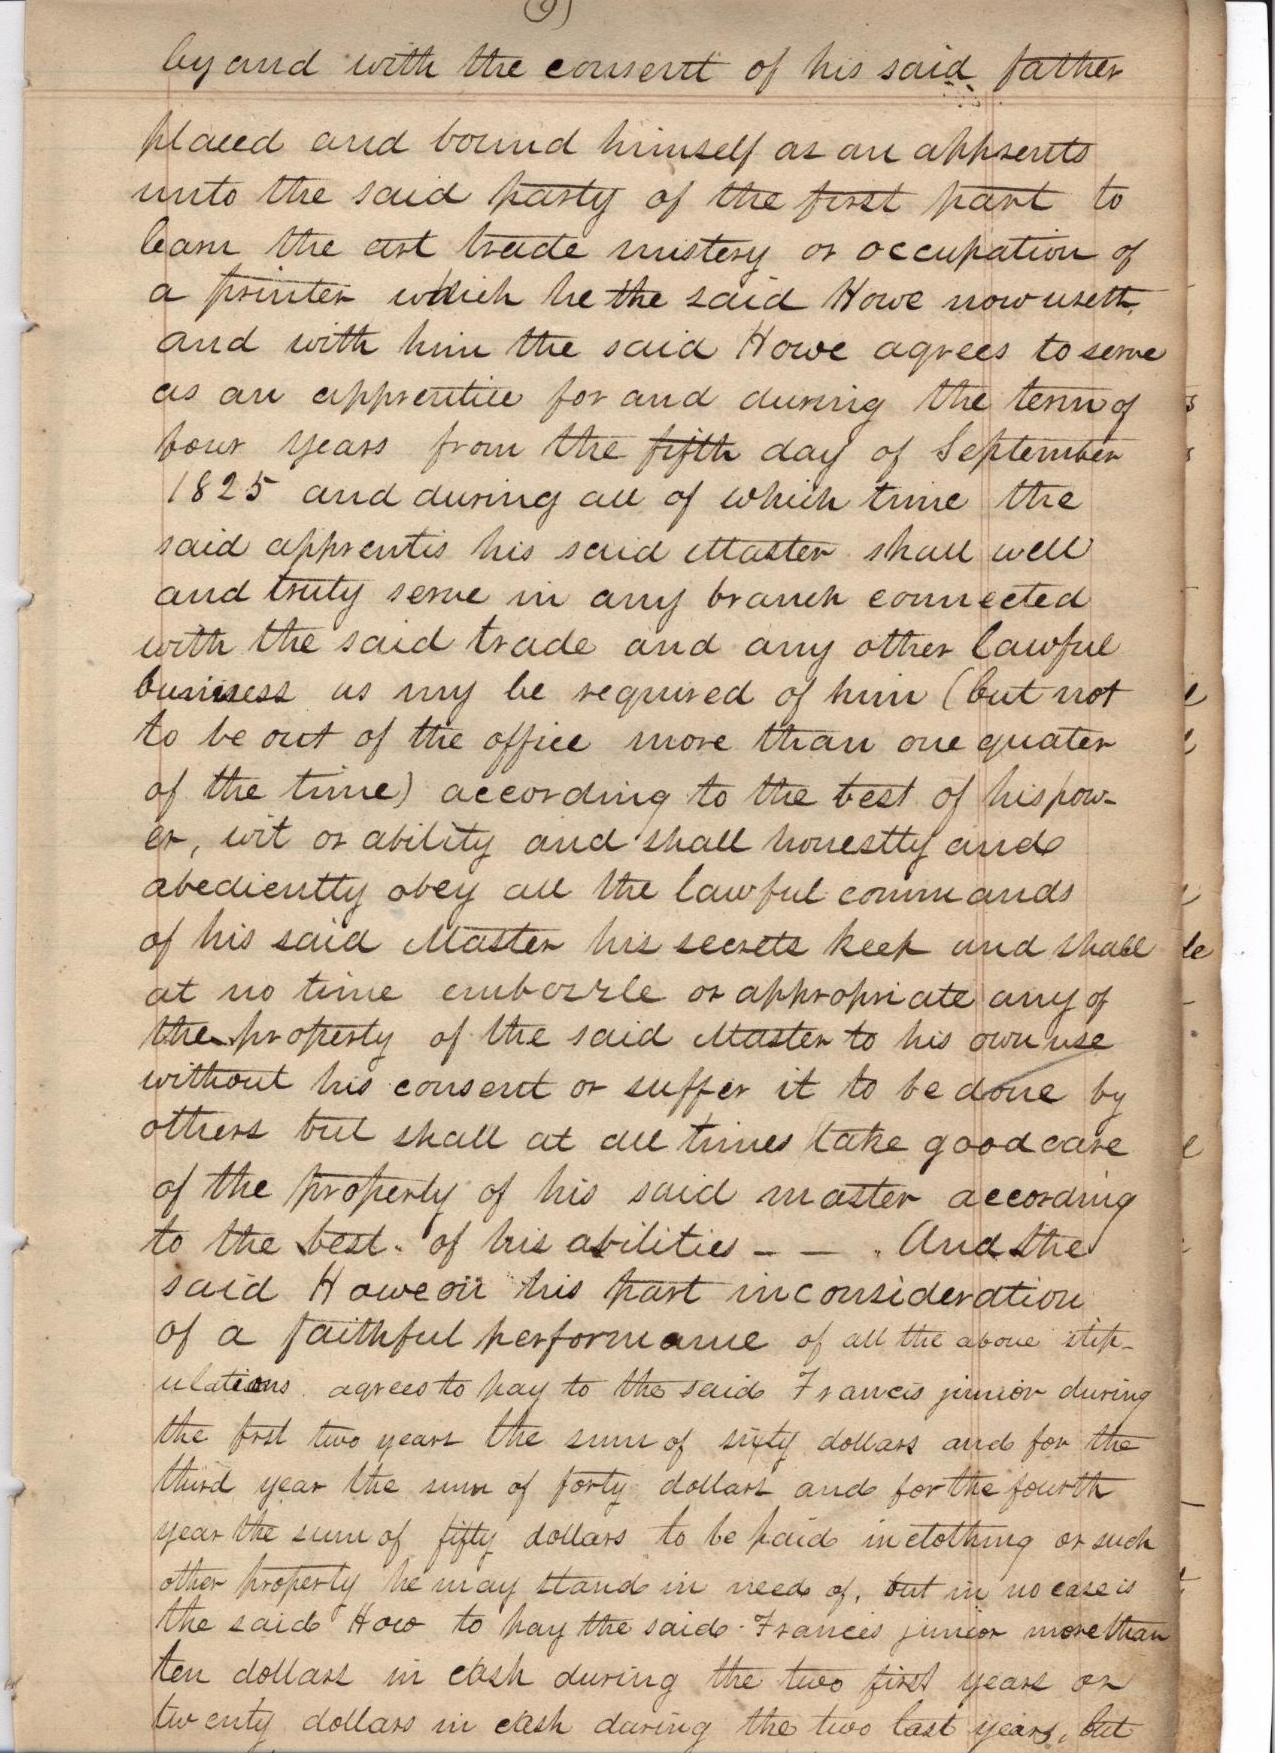 (9)
by and with the consent of his said father
placed and bound himself as an apprentis
unto the said party of the first part to
learn the art trade mistery or occupation of
a printer which he the said Howe now useth
and with him the said Howe agrees to serve
as an apprentice for and during the term of
four years from the fifth day of September
1825 and during all of which time the
said apprentis his said Master shall well
and truty serve in any branch connected
with the said trade and any other lawful
business as my be required of him (but not
to be out of the office more than one quater
of the time) according to the best of his pow-
er, wit or ability and shall honestty and
abediently obey all the lawful commands
of his said Master his secrets keep and shall
at no time embozzle or appropriate any of
the property of the said Master to his own use
without his consent or suffer it to be done by
others but shall at all times take good care
of the property of his said master according
to the best. of his abilities - - . And the
said Howe on his part in consideration
of a faithful performance of all the above stip-
ulations agrees to pay to the said Francis junior during
the frst two years the sum of sixty dollars and for the
third year the sum of forty dollars and for the fourth
year the sum of fifty dollars to be paid in clothing or such
other property he may stand in need of, but in no case is
the said How to pay the said Francis junior more than
ten dollars in cash during the two first years or
twenty dollars in cash during the two last years, but